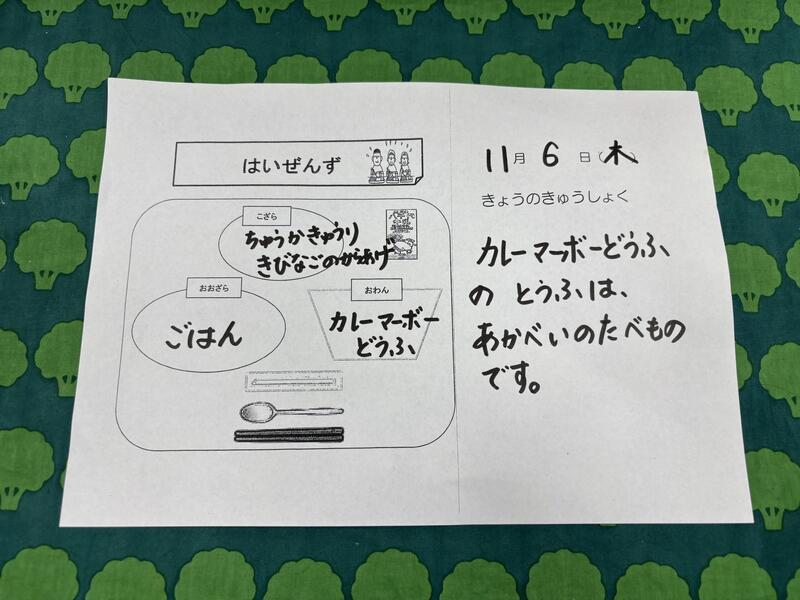 はいぜんず
こざら
ちゅうかきゅうり
きびなごのからあげ
おおざら
ごはん
おわん
カレーマーボー
どうふ
11月6日(木)
きょうのきゅうしょく
カレーマーボーどうふ
のとうふは、
あかべいのたべもの
です。